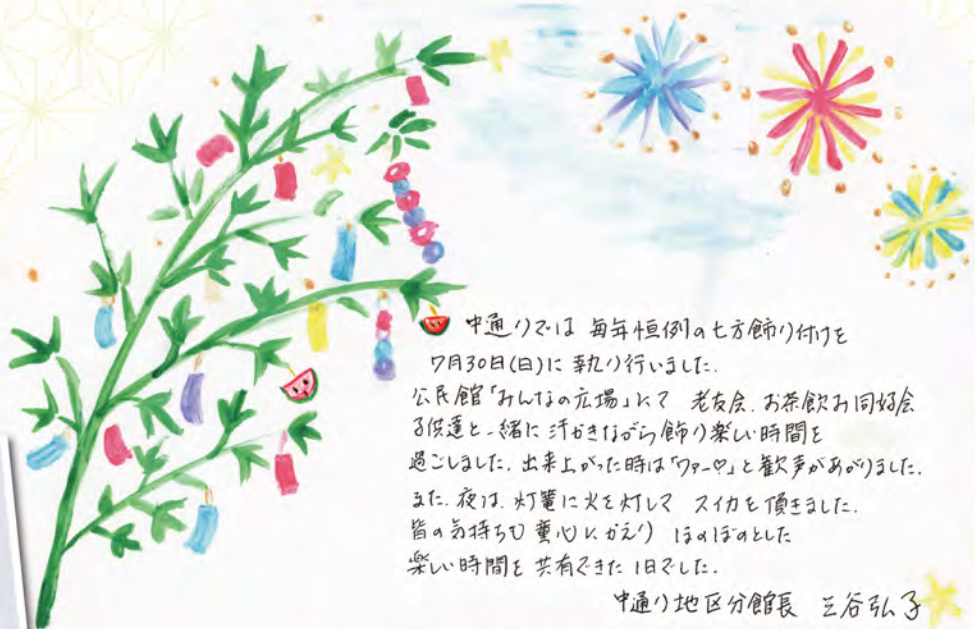 中通りでは 毎年恒例の七夕飾り付けを
7月30日(日)に 執り行いました.
公民館「みんなの広場」にて 老友会.お茶飲み同好会
子供達と一緒に 汗かきながら飾り楽しい時間を
過ごしました.出来上がった時は「ワァー♡」と歓声があがりました.
また.夜は.灯篭に火を灯して スイカを頂きました.
皆の気持ちも 童心にかえり ほのぼのとした
楽しい時間を 共有できた 1日でした.
中通り地区分館長 三谷弘子